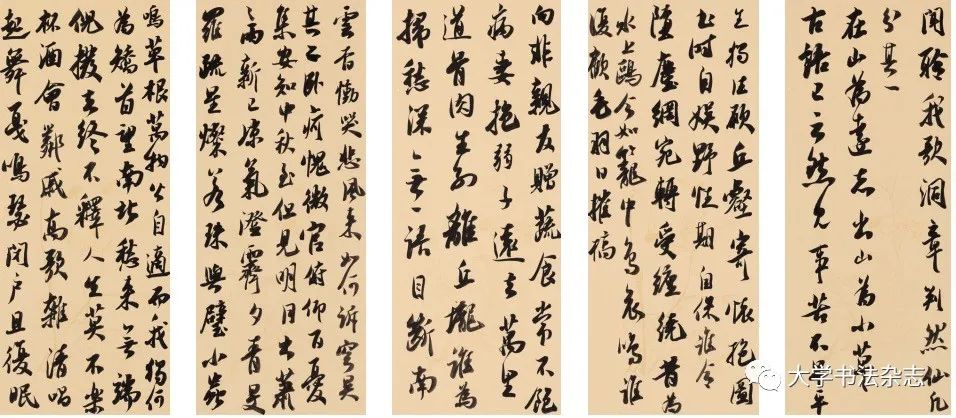 聞聆我歌洞章判然仙凡
分其一
在山為遠志出山為小草
古語已云然見事苦不早平
生獨往願丘壑寄懷抱圖
書時自娛野性期自保誰令
墮塵網宛轉受纏繞昔為
水上鷗今如籠中鳥哀鳴誰
復顧毛羽日摧槁
向非親友贈蔬食常不飽
病妻抱弱子遠去萬里
道骨肉生別離丘壠誰為
掃愁深無一語目斷南
雲杳慟哭悲風來如何訴穹昊
其二卧病愧微官俯仰百憂
集安知中秋至但見明月出蕭
齋新已涼氣澄霽夕青旻
羅疏星燦若珠與璧小蟲
鳴草根萬物各自適而我獨何
為矯首望南北愁來無端
倪撥去終不釋人生莫不樂
杯酒會鄰戚高歌雜清唱
起舞戛鳴瑟閉戶且復眠
大学书法杂志